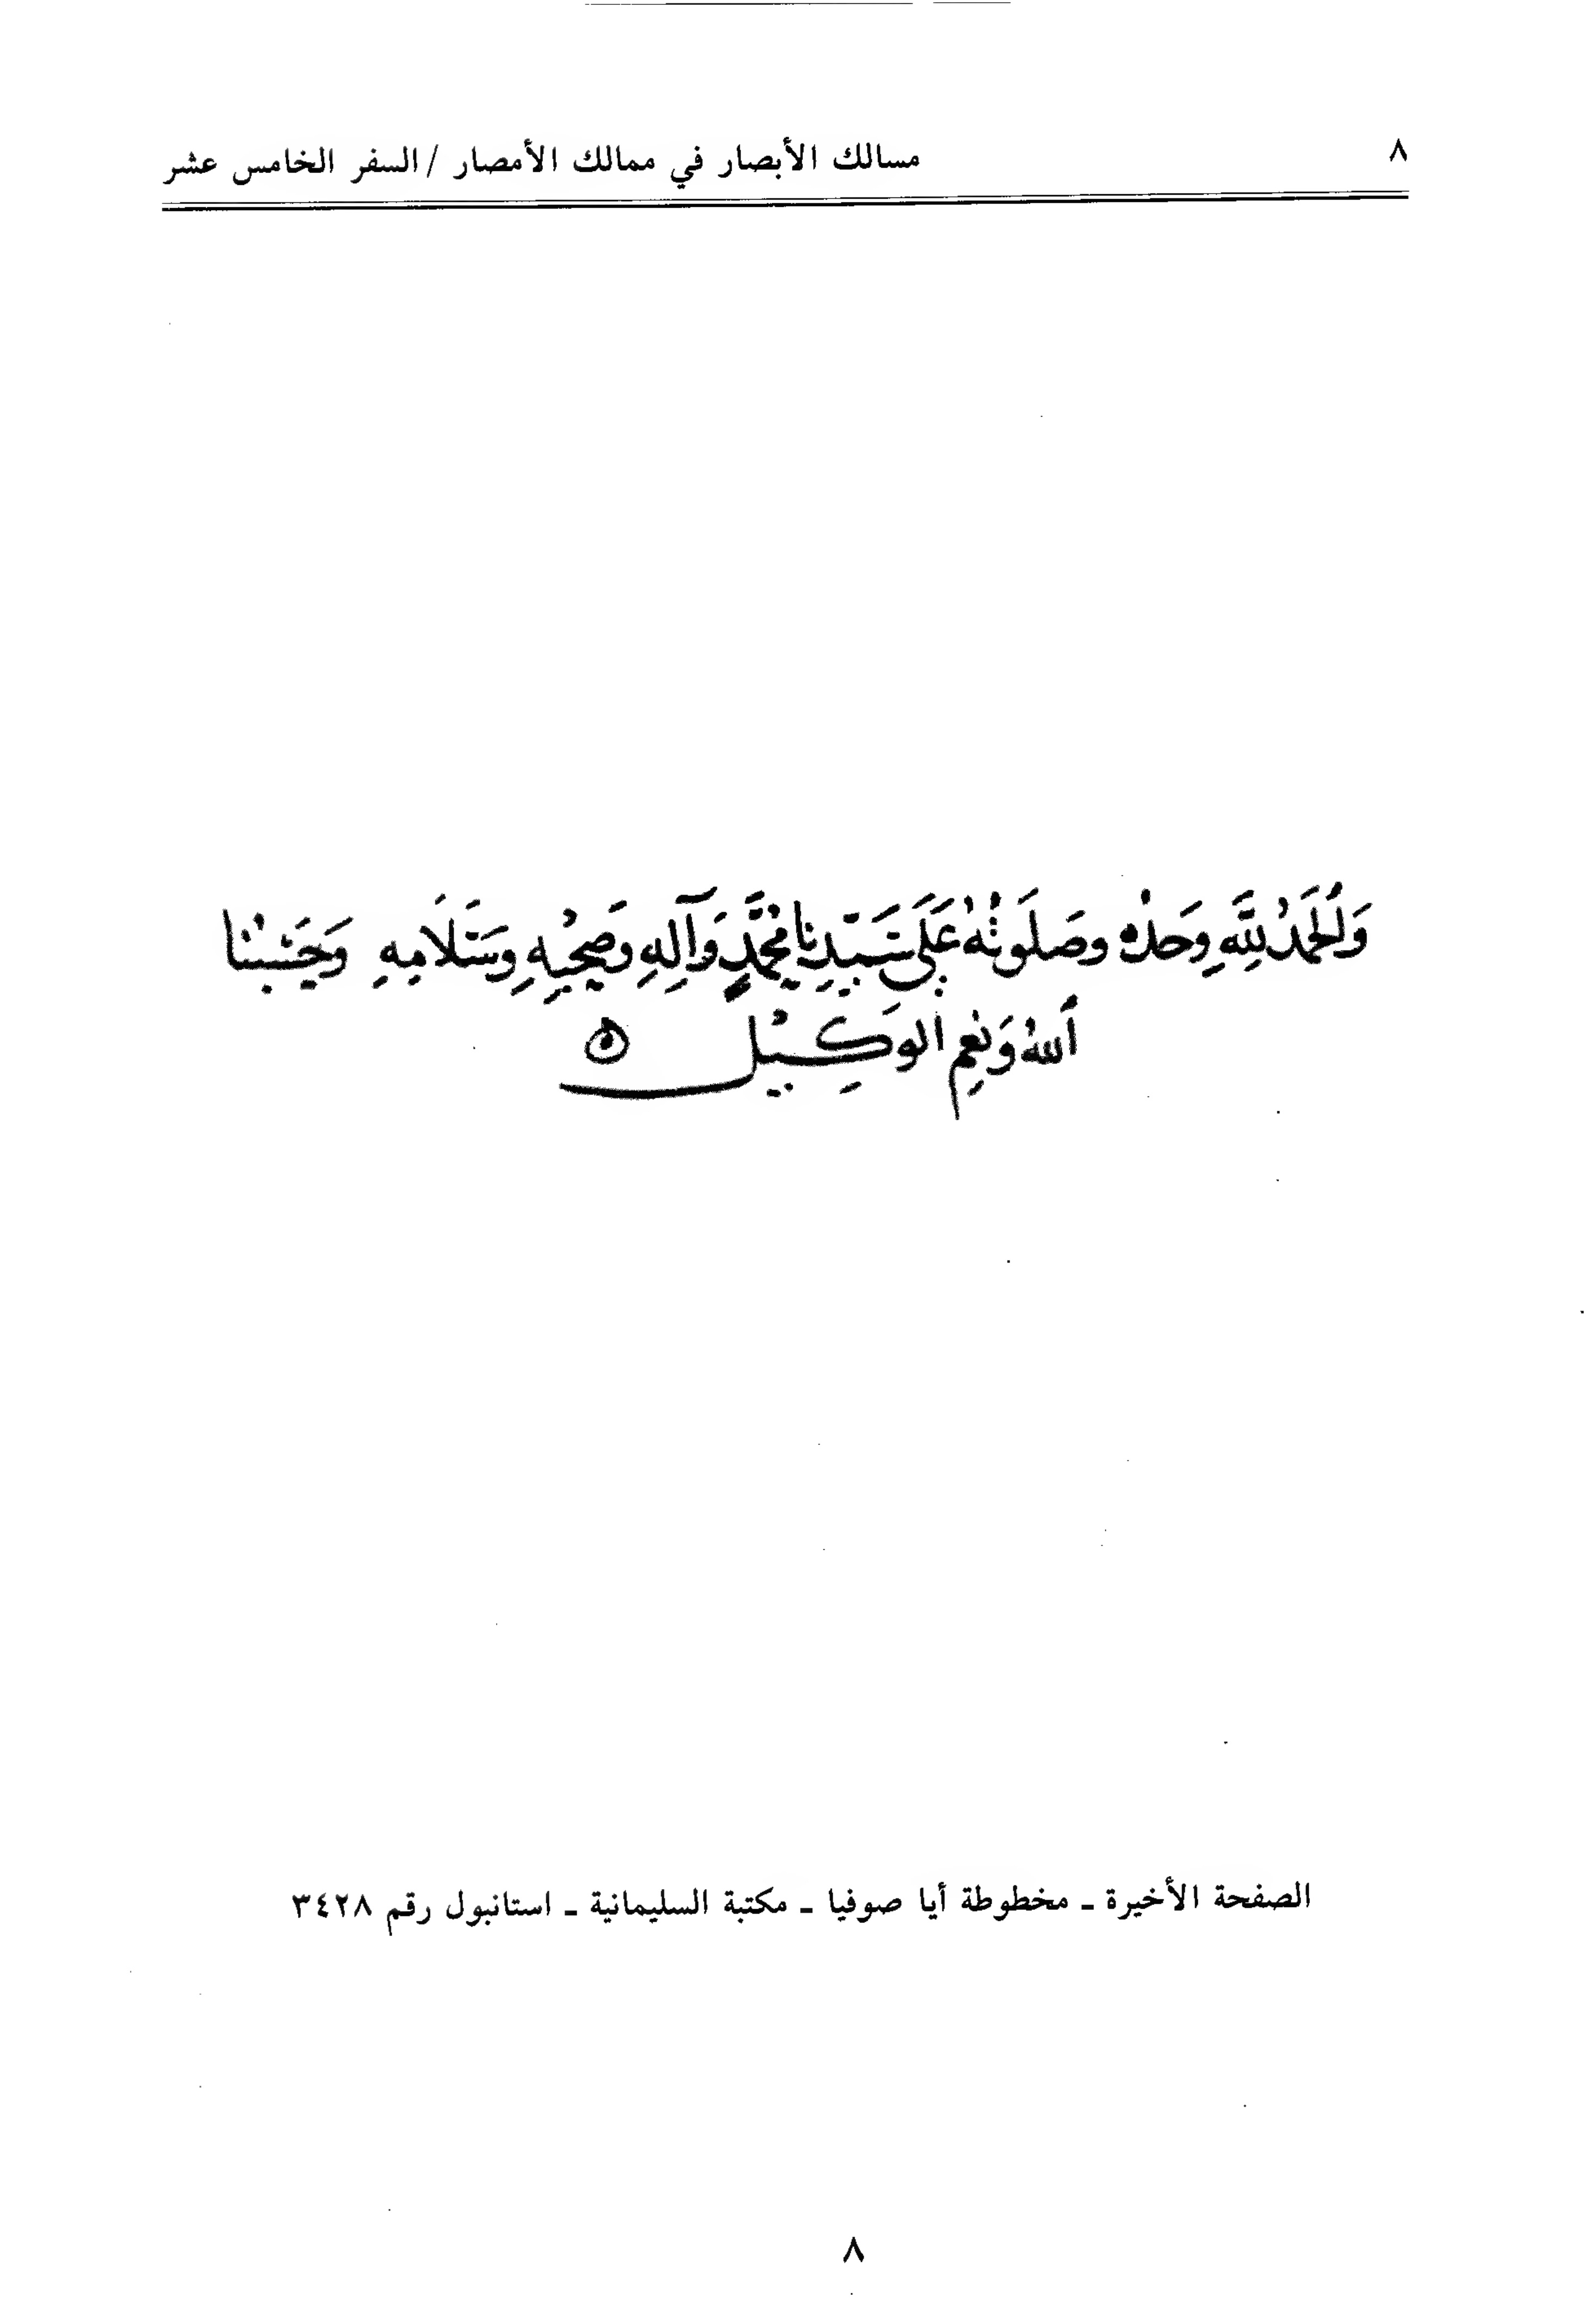 ٨
مسالك الأبصار في ممالك الأمصار / السفر الخامس عشر
وَالْحَمْدُ لِلَّهِ وَحْدَهُ وصَلَوتُهُ عَلَى سَيِّدِنَا مُحَمَّدٍ وَآلِهِ وصَحْبِهِ وسَلَامِهِ وَحَسْبُنَا
اللهُ وَنِعْمَ الوَكِيْل ه
الصفحة الأخيرة - مخطوطة أيا صوفيا - مكتبة السليمانية - استانبول رقم ٣٤٢٨
٨